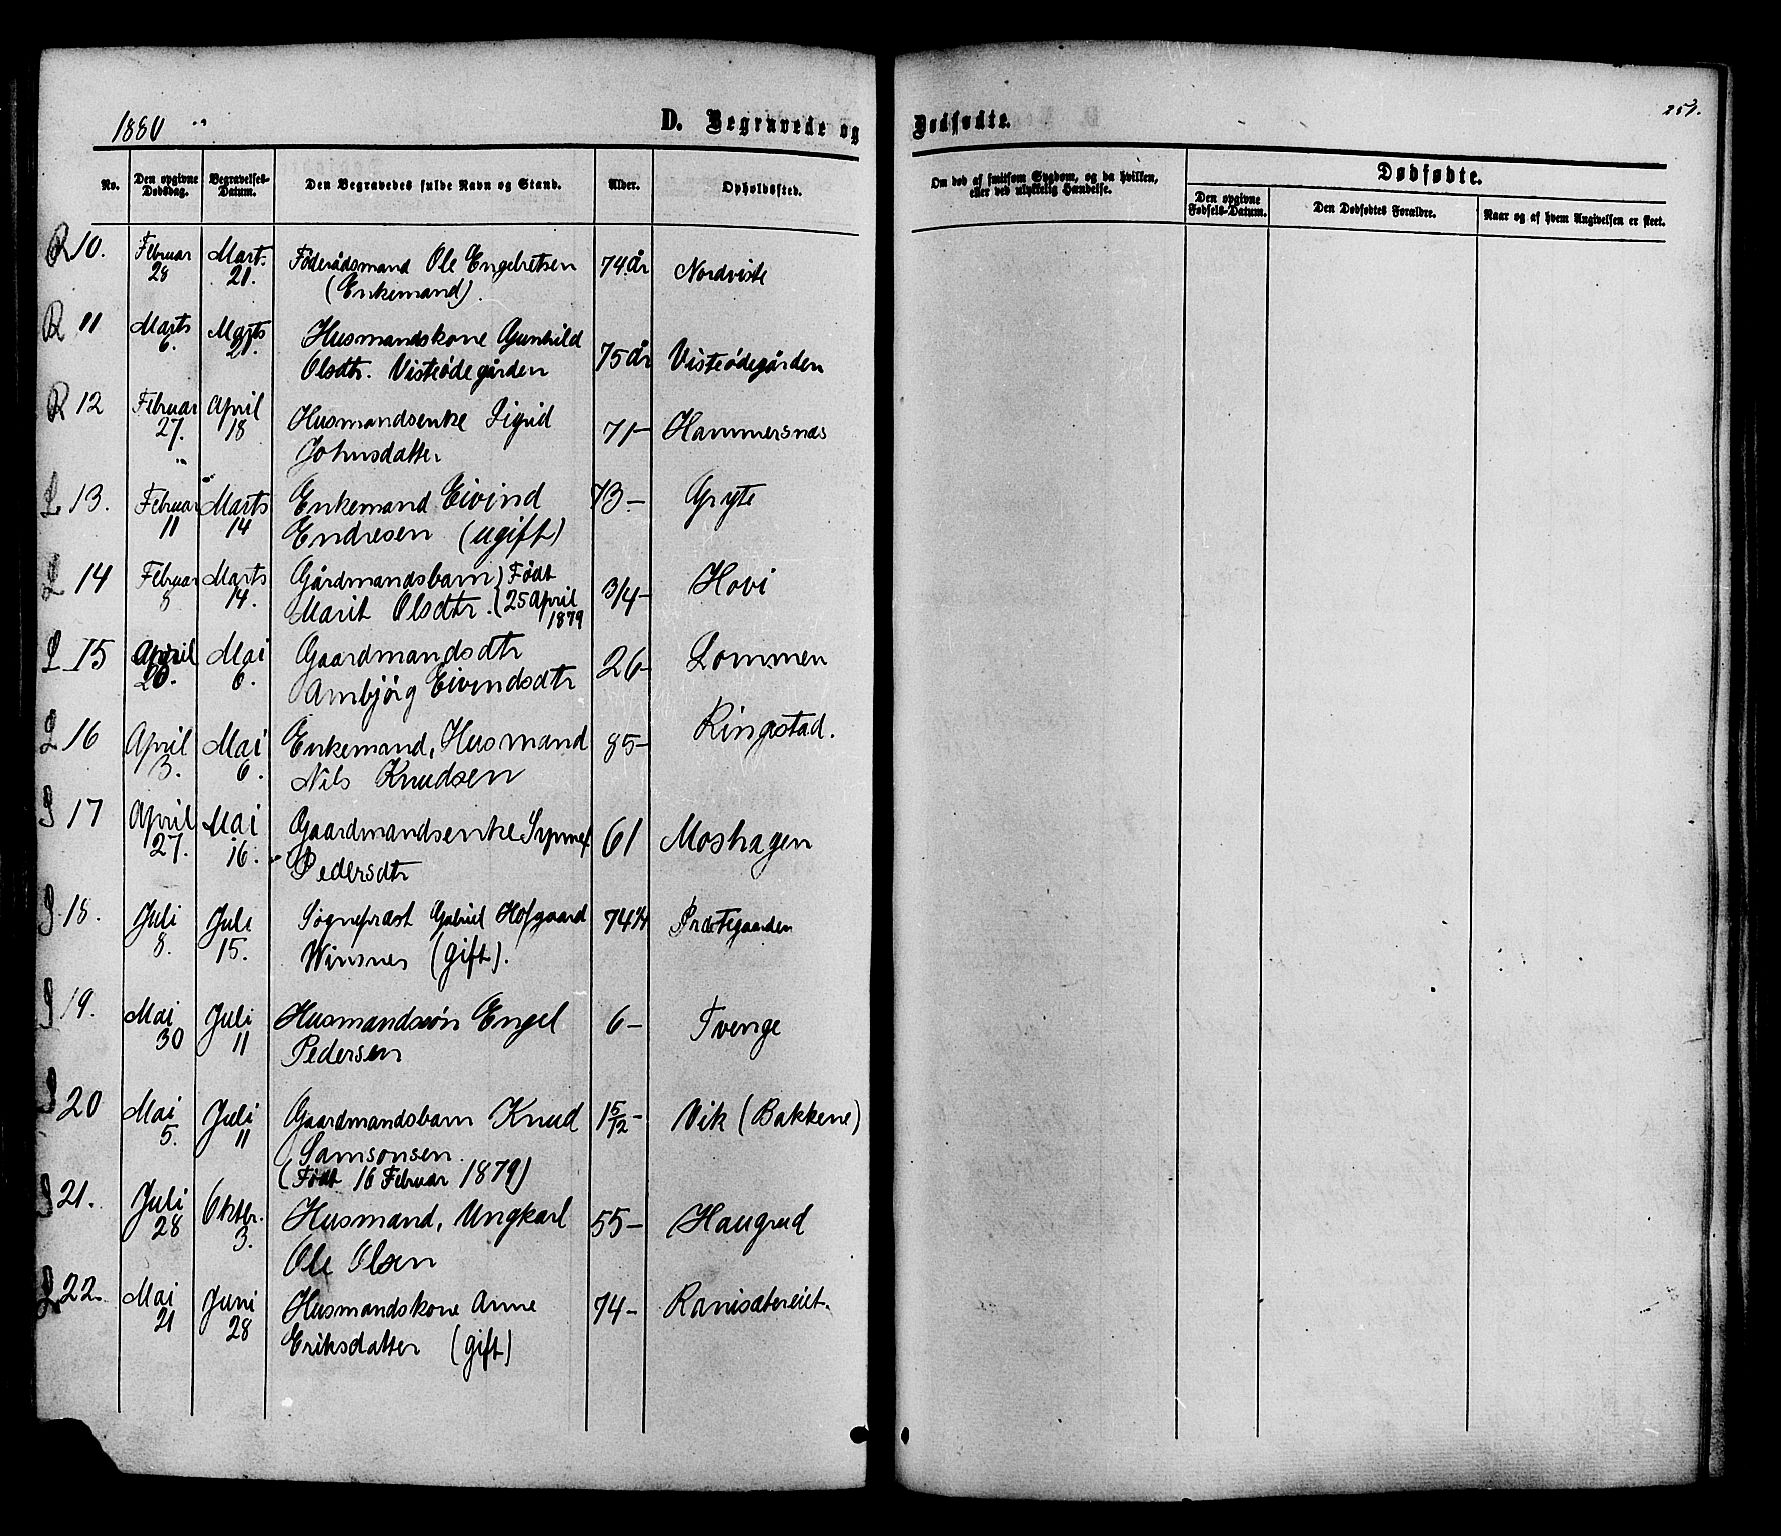 1880
D. Begravede og
Dødfødte.
251.
No.
Den opgivne Dødsdag.
Begravelses-Datum.
Den Begravedes fulde Navn og Stand.
Alder.
Opholdssted.
Om død af smitsom Sygdom, og da hvilken,
eller ved ulykkelig Hændelse.
Dødfødte.
Den opgivne Fødsels-Datum.
Den Dødfødtes Forældre.
Naar og af hvem Angivelsen er skeet.
R 10. Februar 28 Mart. 21. Føderådsmand Ole Engebretsen 74 år Nordviste
(Enkemand).
R 11 Marts 6. Marts 21. Husmandskone Gunhild 75 år Visteødegården
Olsdtr. Visteødegården
R 12 Februar 27. April 18 Husmandsenke Sigrid 71- Hammersnæs
Johnsdatter
L 13. Februar 11 Marts 14 Enkemand Eivind 73.- Gryte
Endresen (ugift)
L 14 Februar 8 Marts 14. Gårdmandsbarn Født 3/4- Hovi
Marit Olsdtr. 25 April
1879
L 15 April 20. Mai 6. Gaardmandsdtr 26- Lommen
Ambjörg Eivindsdtr
L 16 April 3. Mai 6. Enkemand, Husmand 85- Ringstad.
Nils Knudsen
S 17 April 27. Mai 16. Gaardmandsenke 61 Moshagen
Pedersdtr
S 18. Juli 8. Juli 15. Sognepræst Gabriel Hofgaard 74 Præstegaarden
Winsnes (gift).
S 19. Mai 30 Juli 11 Husmandssön Engel 6- Tvenge
Pedersen
S 20 Mai 5. Juli 11 Gaardmandsbarn Knud 1 5/12- Vik (Bakkene)
Samsonsen
(Født 16 Februar 1879)
S 21. Juli 28 Oktbr. 3. Husmand, Ungkarl 55- Haugrud
Ole Olsen
22. Mai 21 Juni 28 Husmandskone Anne 74- Ranisætereiet.
Eriksdatter (gift)